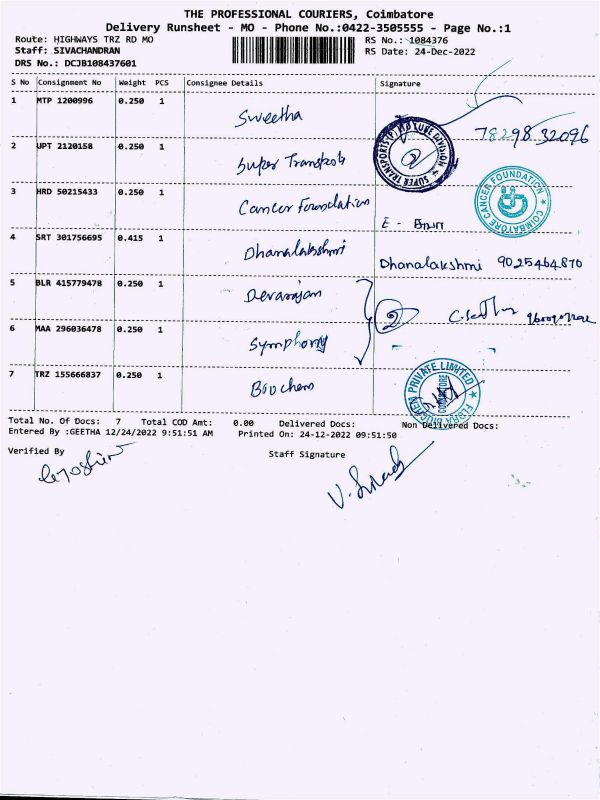 THE PROFESSIONAL COURIERS, Coimbatore
Delivery Runsheet - MO - Phone No.:0422-3505555 - Page No.:1
Route: HIGHWAYS TRZ RD MO RS No.: 1084376
Staff: SIVACHANDRAN RS Date: 24-Dec-2022
DRS No.: DCJB108437601
S No Consignment No Weight PCS Consignee Details Signature
1 MTP 1200996 0.250 1 Swetha 78298 32096
2 UPT 2120158 0.250 1 Super Transports
SUPER TRANSPORTS (P) LUBE DIVISION
3 HRD 50215433 0.250 1 Cancer Foundation E -
COIMBATORE CANCER FOUNDATION
4 SRT 301756695 0.415 1 Dhanalakshmi Dhanalakshmi 9025464870
5 BLR 415779478 0.250 1 Devarajan 2
6 MAA 296036478 0.250 1 Symphony
7 TRZ 155666837 0.250 1 Biochem
PRIVATE LIMITED COIMBATORE
Total No. Of Docs: 7 Total COD Amt: 0.00 Delivered Docs: Non Delivered Docs:
Entered By :GEETHA 12/24/2022 9:51:51 AM Printed On: 24-12-2022 09:51:50
Verified By Staff Signature